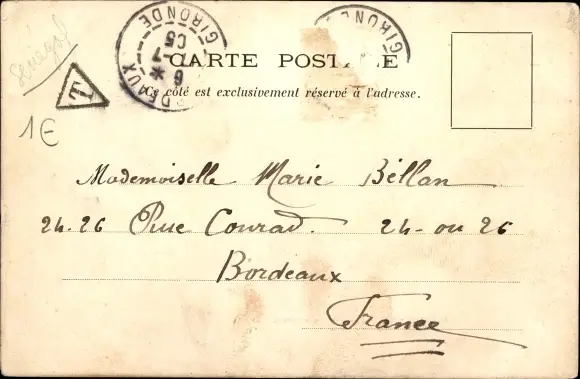 Senegal
BORDEAUX GIRONDE
6 * 7
05
GIRONDE
CARTE POSTALE
Ce côté est exclusivement réservé à l'adresse.
T
1€
Mademoiselle Marie Béllan
24-26 Rue Conrad. 24- ou 26
Bordeaux
France